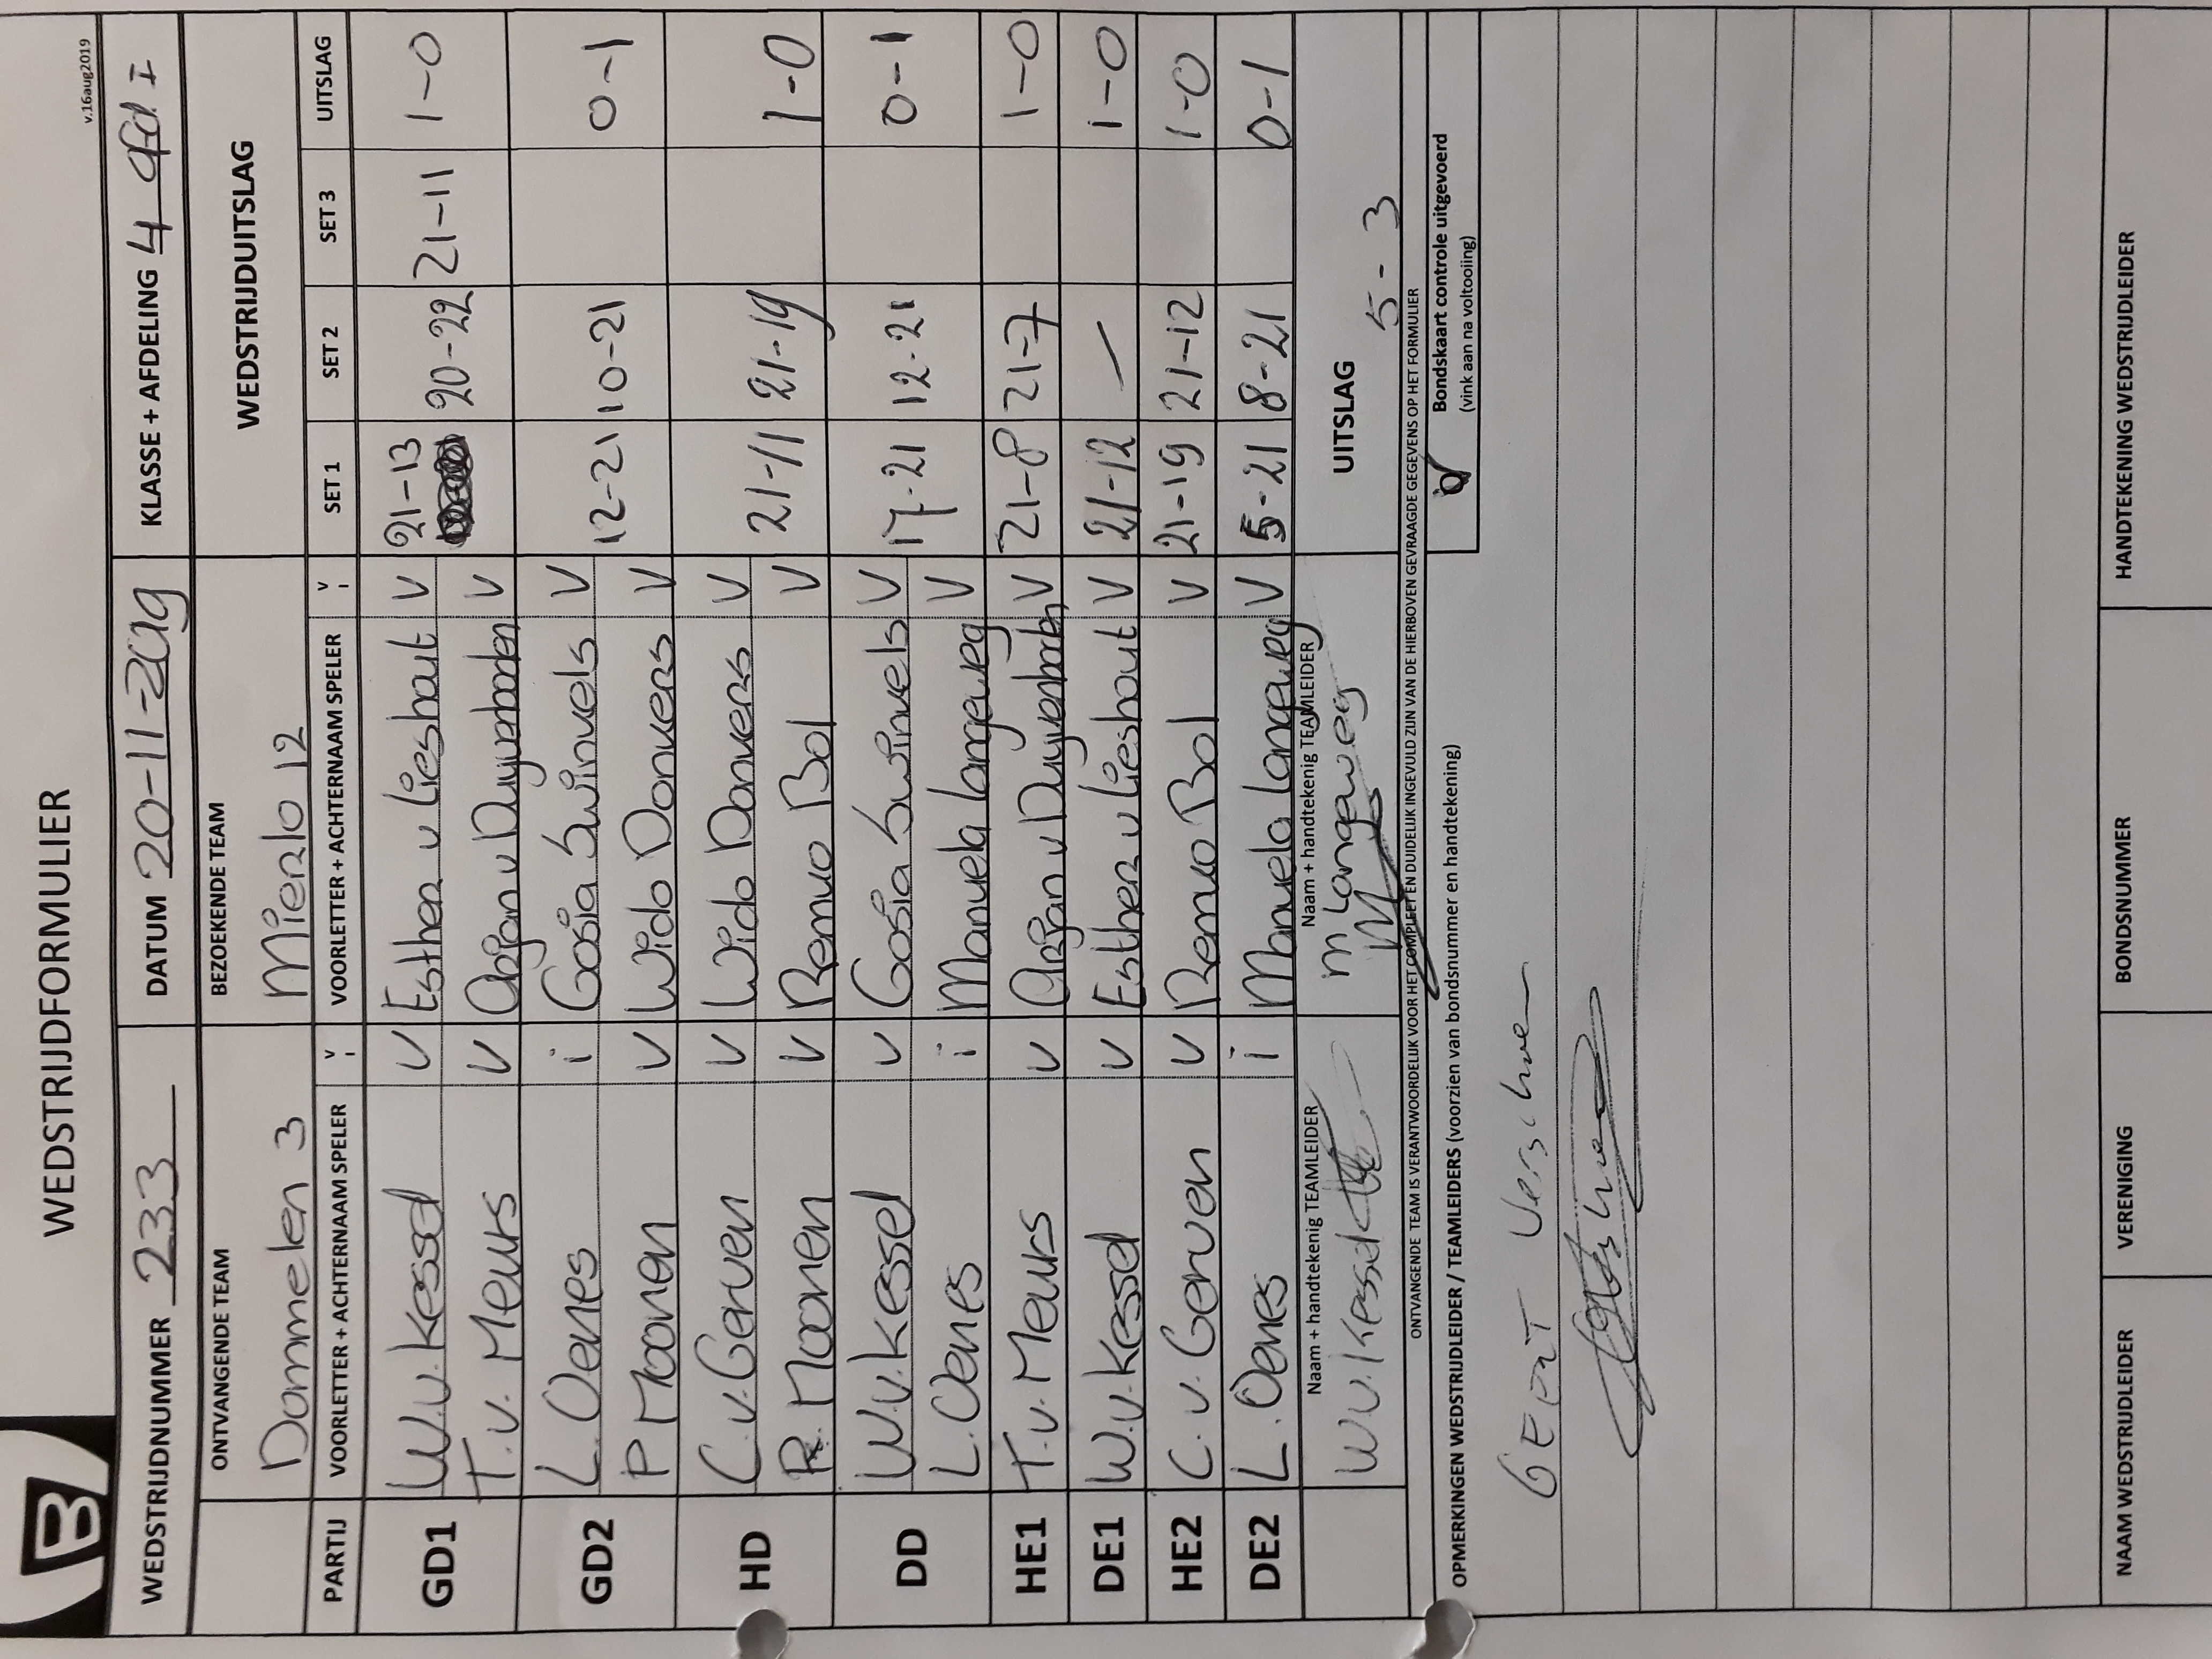 WEDSTRIJDFORMULIER
v.16aug2019
B
WEDSTRIJDNUMMER 233 DATUM 20-11-2019 KLASSE + AFDELING 4 afd. I
ONTVANGENDE TEAM BEZOEKENDE TEAM WEDSTRIJDUITSLAG
Dommelen 3 Mierlo 12
PARTIJ VOORLETTER + ACHTERNAAM SPELER V I VOORLETTER + ACHTERNAAM SPELER V I SET 1 SET 2 SET 3 UITSLAG
GD1 W.v.Kessel V Esther v Lieshout V 21-13 20-22 21-11 1-0
T.v. Meurs V Arjan v Duijenboden V
GD2 L. Oenes i Gosia Swinvels V 12-21 10-21 0-1
P Moonen V Wido Donkers V
HD C.v.Gerven V Wido Donkers V 21-11 21-19 1-0
P. Moonen V Remuo Bol V
DD W.v.Kessel V Gosia Swinvels V 17-21 12-21 0-1
L. Oenes i Manuela Langeweg V
HE1 T.v. Meurs V Arjan v Duijenboden V 21-8 21-7 1-0
DE1 W.v.Kessel V Esther v Lieshout V 21-12 - 1-0
HE2 C. v. Gerven V Remuo Bol V 21-19 21-12 1-0
DE2 L. Oenes i Manuela Langeweg V 5-21 8-21 0-1
Naam + handtekenig TEAMLEIDER Naam + handtekenig TEAMLEIDER UITSLAG
W.v.Kessel m Langeweg 5-3
ONTVANGENDE TEAM IS VERANTWOORDELIJK VOOR HET COMPLEET EN DUIDELIJK INGEVULD ZIJN VAN DE HIERBOVEN GEVRAAGDE GEGEVENS OP HET FORMULIER
OPMERKINGEN WEDSTRIJDLEIDER / TEAMLEIDERS (voorzien van bondsnummer en handtekening) Bondskaart controle uitgevoerd
(vink aan na voltooiing)
GERT
NAAM WEDSTRIJDLEIDER VERENIGING BONDSNUMMER HANDTEKENING WEDSTRIJDLEIDER